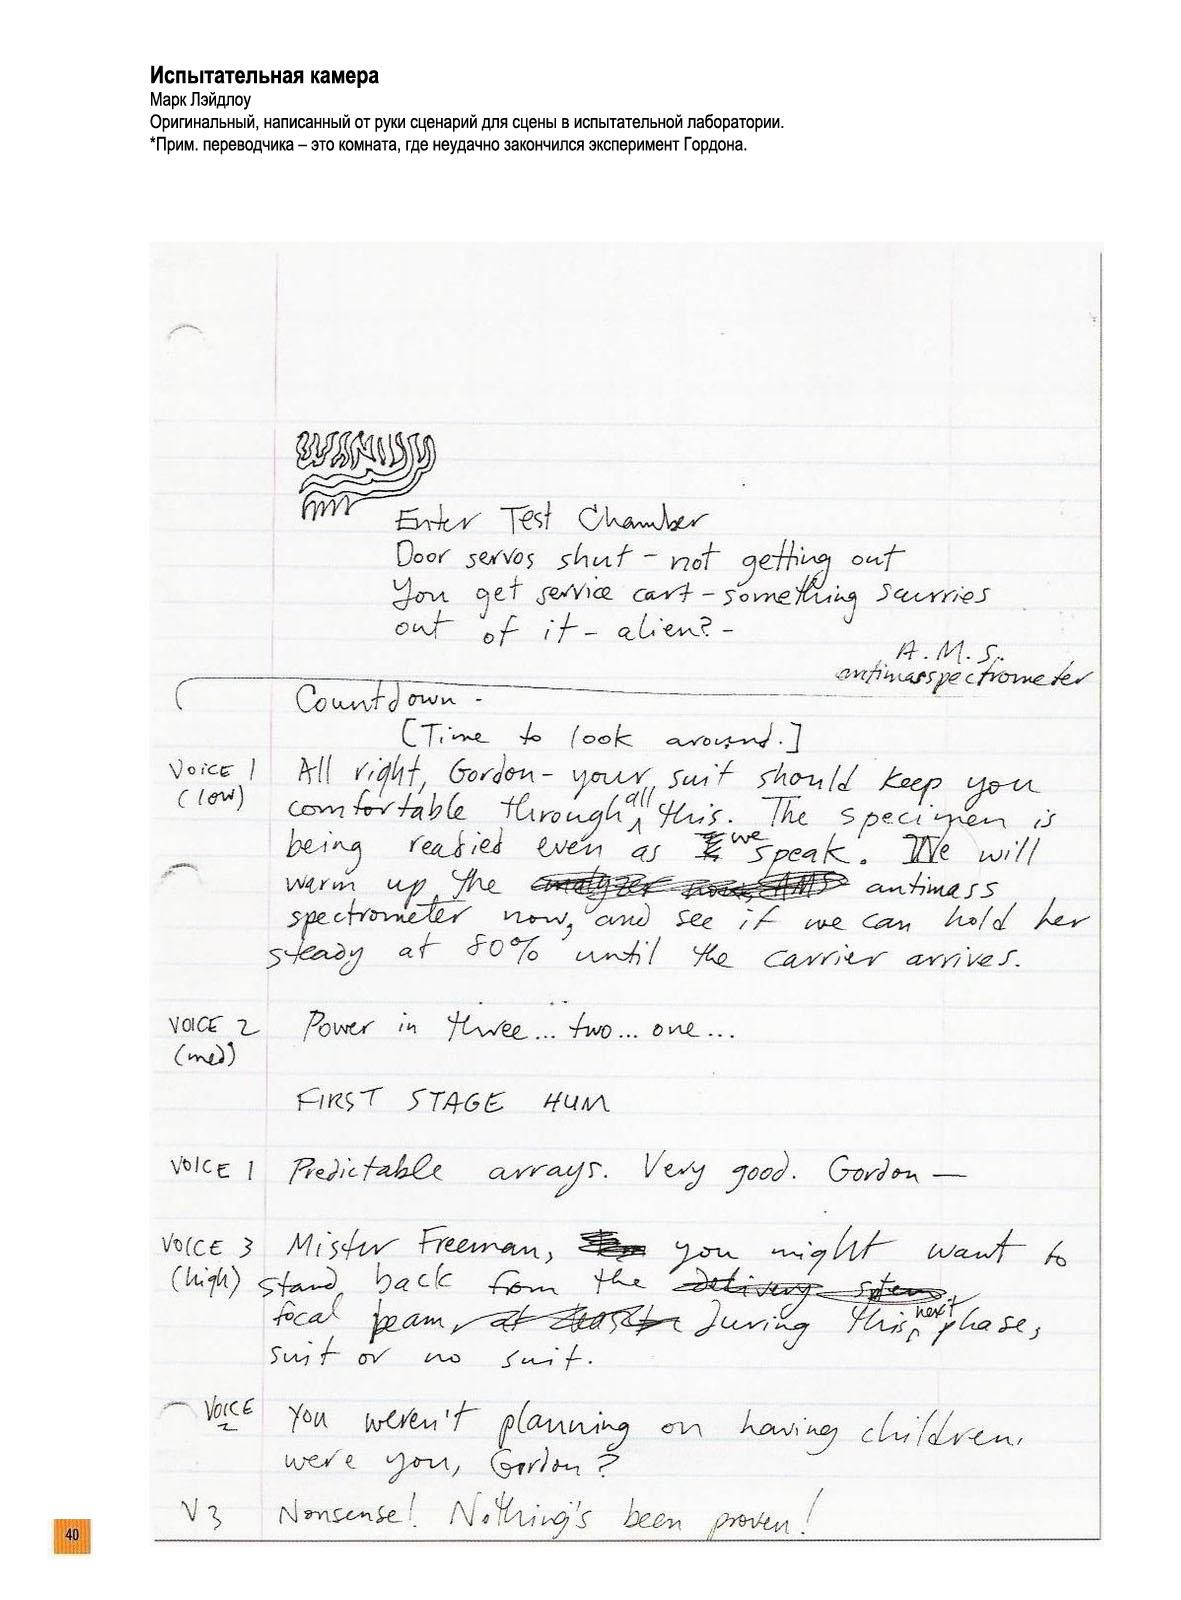 Испытательная камера
Марк Лэйдлоу
Оригинальный, написанный от руки сценарий для сцены в испытательной лаборатории.
*Прим. переводчика – это комната, где неудачно закончился эксперимент Гордона.
Enter Test Chamber
Door servos shut – not getting out
You get service cart – something scurries
out of it – alien? –
A.M.S.
antimasspectrometer
Countdown -
[Time to look around.]
VOICE 1 All right, Gordon – your suit should keep you
(low) comfortable through all this. The specimen is
being readied even as we speak. We will
warm up the analyzer now, AMS antimass
spectrometer now, and see if we can hold her
steady at 80% until the carrier arrives.
VOICE 2 Power in three... two... one...
(med)
FIRST STAGE HUM
VOICE 1 Predictable arrays. Very good. Gordon —
VOICE 3 Mister Freeman, you might want to
(high) stand back from the delivery system
focal beam, at least during this next phase,
suit or no suit.
VOICE 2 You weren't planning on having children,
were you, Gordon?
V3 Nonsense! Nothing's been proven!
40